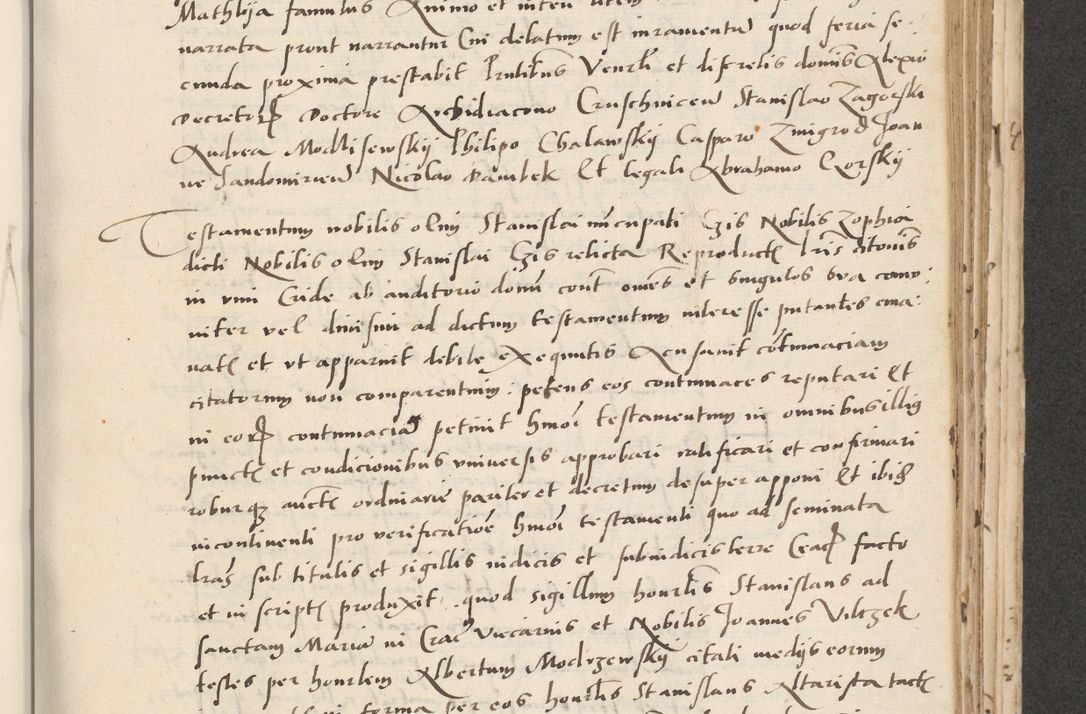 Mathyja famulus Animo et inten
narrata prout narrantur Cui delatum est iuramentū quod feria se
cunda proxima prestabit Prntibus Venrli et discretis dominis Alexio
Decretoꝝ Doctore Archidiacono Cruschvicen Stanislao Zagorski
Andrea Modlisewskij Philipo Chalawskij Casparo Zmigrod Joan
ne Sandomirien Nicolao Dambek Et legali Abrahamo Gorskij
Testamentum nobilis olim Stanislai nūcupati Gzis Nobilis Zophia
dicti Nobilis olim Stanislai Gzis relicta Reproductis lrīs citonis
in vim Cride ab auditorio domī cont omēs et singulos sua comū
niter vel divisim ad dictum testamentum interesse putantes ema
natis et ut apparuit debite exequutis Acusavit cōtumaciam
citatorum non comparentium petens eos contumaces reputari Et
in eoꝝ contumaciā petiit hmōi testamentum in omnibus illis
punctis et condicionibus universis approbari ratificari et confirmari
roburqꝫ auctis ordinarie pariter et decretum desuper apponi Et ibid
incontinenti pro verificatiōe hmōi testamenti quo ad seminata
lrās sub titulis et sigillis iudicis et subiudicis terre Cracoꝝ facto
et in scriptis produxit quod sigillum honrlīs Stanislaus ad
sanctam Mariā in Crac Vicarius et Nobilis Joannes Vilczek
testes per honrlem Albertum Modrzewskij citati medijs eorum
forma per eos honrlīs Stanislaus Altarista tactis